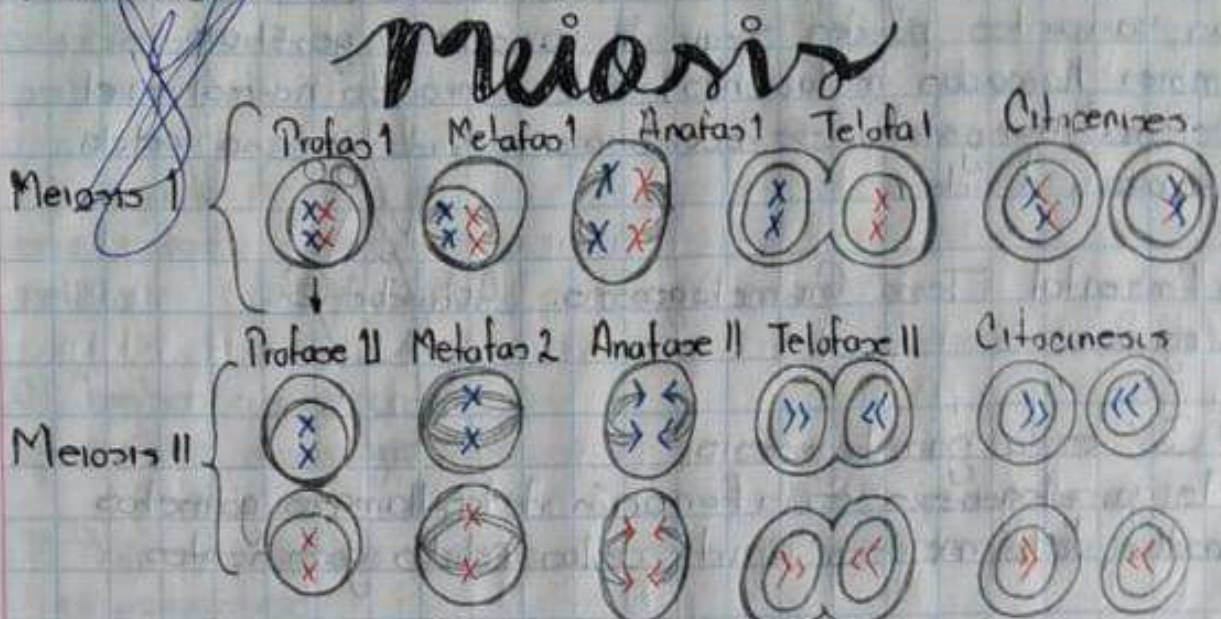 Meiosis
Profas 1 Metafas 1 Anafas 1 Telofa 1 Citocenises
Meiosis I
Profase II Metafas 2 Anafase II Telofase II Citocinesis
Meiosis II